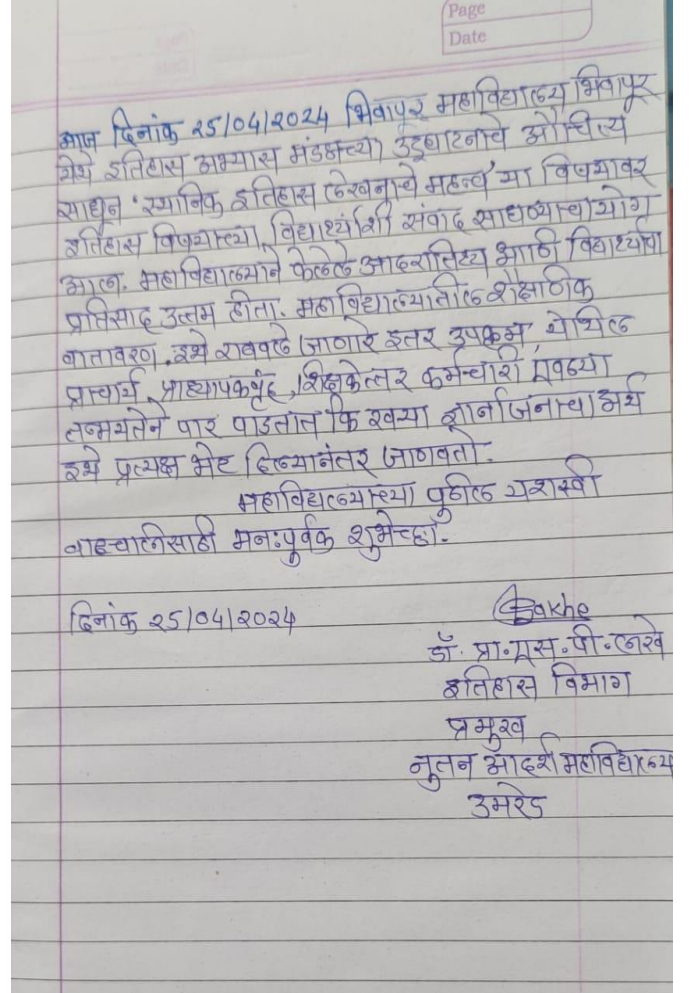 Page
Date
आज दिनांक २५/०४/२०२४ भिवापूर महाविद्यालय भिवापूर
येथे इतिहास अभ्यास मंडळाच्या उद्घाटनाचे औचित्य
साधून 'स्थानिक इतिहास लेखनाचे महत्व' या विषयावर
इतिहास विषयाच्या विद्यार्थ्यांशी संवाद साधण्याचा योग
आला. महाविद्यालयाने केलेले आदरातिथ्य आणि विद्यार्थ्यांचा
प्रतिसाद उत्तम होता. महाविद्यालयातील शैक्षणिक
वातावरण, इथे राबवले जाणारे इतर उपक्रम, येथील
प्राचार्य, प्राध्यापकवृंद, शिक्षकेत्तर कर्मचारी एवढ्या
तन्मयतेने पार पाडतात कि खऱ्या ज्ञानार्जनाचा अर्थ
इथे प्रत्यक्ष भेट दिल्यानंतर जाणवतो.
महाविद्यालयाच्या पुढील यशस्वी
वाटचालीसाठी मनःपूर्वक शुभेच्छा.
दिनांक २५/०४/२०२४
Lakhe
डॉ. प्रा. एस. पी. लाखे
इतिहास विभाग
प्रमुख
नुतन आदर्श महाविद्यालय
उमरेड